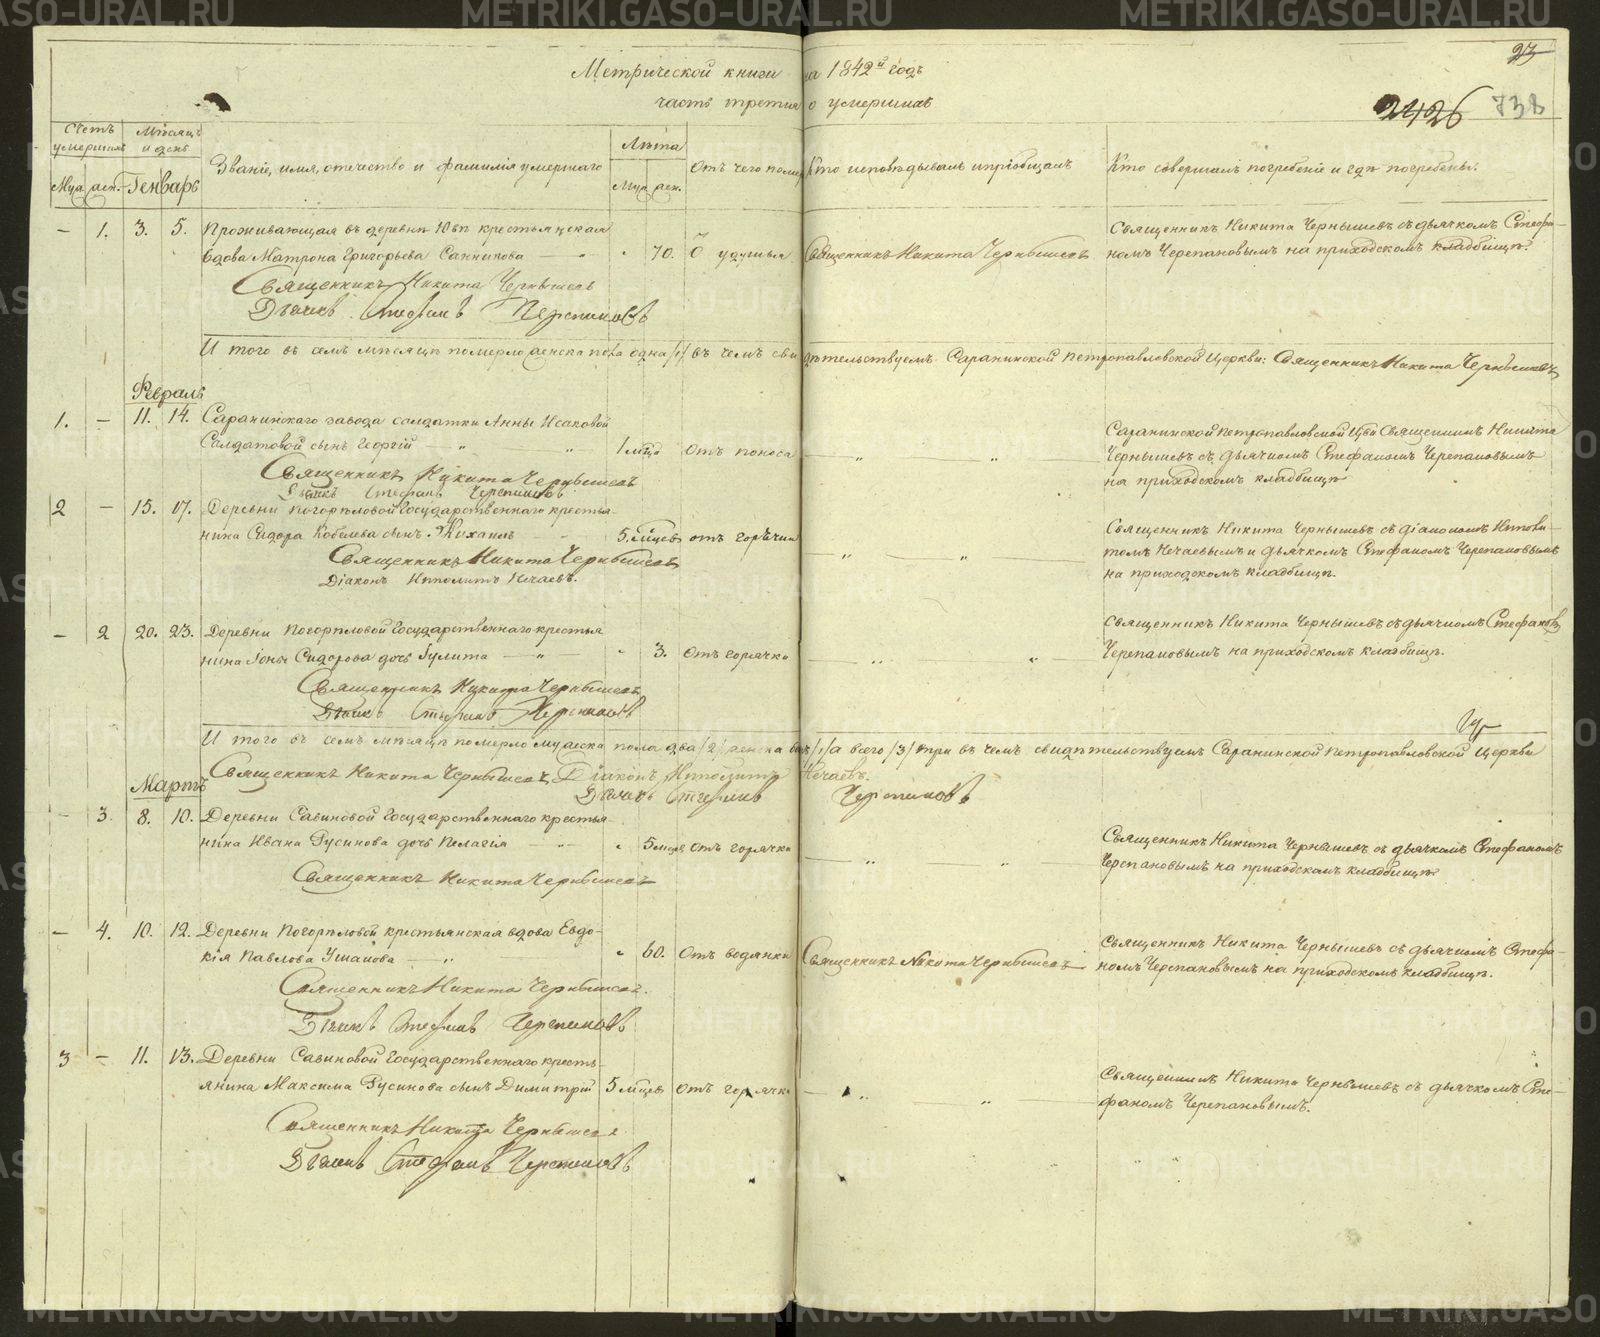 Метрической книги на 1842й годъ
часть третия о умершихъ
23
2426 738
Счетъ умершихъ
Мѣсяцъ и день
Званіе, имя, отчество и фамилія умершаго
Лѣта
Отъ чего померъ
Кто исповѣдывалъ и пріобщалъ
Кто совершалъ погребеніе и гдѣ погребены.
Муж. жен. Генварь Муж. жен.
– 1. 3. 5. Проживающая въ деревнѣ Ювѣ крестьянская
вдова Матрона Григорьева Санникова „ 70. О удушья Священникъ Никита Чернышевъ
Священникъ Никита Чернышевъ съ дьячкомъ Стефа-
номъ Черепановымъ на приходскомъ кладбищѣ
Священникъ Никита Чернышевъ
Дьячекъ Стефанъ Черепановъ
И того въ семъ мѣсяцѣ померло женска пола одна /1/ въ чемъ свидѣтельствуемъ Саранинской Петропавловской Церкви: Священникъ Никита Чернышевъ
Февраль
1. – 11. 14. Саранинскаго завода солдатки Анны Исаковой
Солдатовой сынъ Георгій „ „ 1 мѣца отъ поноса „ „
Саранинской Петропавловской Цркви Священникъ Никита
Чернышевъ съ дьячкомъ Стефаномъ Черепановымъ
на приходскомъ кладбищѣ
Священникъ Никита Чернышевъ
Дьячекъ Стефанъ Черепановъ
2 – 15. 17. Деревни Погорѣловой Государственнаго крестья-
нина Сидора Кобелева сынъ Михаилъ 5. мѣцевъ отъ горячки „ „
Священникъ Никита Чернышевъ съ діакономъ Иппoли-
томъ Нечаевымъ и дьячкомъ Стефаномъ Черепановымъ
на приходскомъ кладбищѣ.
Священникъ Никита Чернышевъ
Діаконъ Ипполитъ Нечаевъ.
– 2 20. 23. Деревни Погорѣловой Государственнаго крестья
нина Іоны Сидорова дочь Іулита „ „ 3. Отъ горячки „ „
Священникъ Никита Чернышевъ съ дьячкомъ Стефаномъ
Черепановымъ на приходскомъ кладбищѣ.
Священникъ Никита Чернышевъ
Дьячекъ Стефанъ Черепановъ
И того въ семъ мѣсяцѣ померло мужеска пола два /2/ женска /1/ а всего /3/ три въ чемъ свидѣтельствуемъ Саранинской Петропавловской Церкви
Священникъ Никита Чернышевъ, Діаконъ Ипполитъ Нечаевъ.
Дьячекъ Стефанъ Черепановъ
Мартъ
– 3. 8. 10. Деревни Савиновой Государственнаго крестья-
нина Ивана Русинова дочь Пелагія „ „ 5 мцевъ отъ горячки „ „
Священникъ Никита Чернышевъ съ дьячкомъ Стефаномъ
Черепановымъ на приходскомъ кладбищѣ
Священникъ Никита Чернышевъ
– 4. 10. 12. Деревни Погорѣловой крестьянская вдова Евдо-
кія Павлова Ушакова „ „ 60. Отъ водянки Священникъ Никита Чернышевъ
Священникъ Никита Чернышевъ съ дьячкомъ Стефа-
номъ Черепановымъ на приходскомъ кладбищѣ.
Священникъ Никита Чернышевъ.
Дьячекъ Стефанъ Черепановъ
3 – 11. 13. Деревни Савиновой Государственнаго кресть-
янина Максима Русинова сынъ Димитрій 5 мѣцевъ отъ горячки „ „
Священникъ Никита Чернышевъ съ дьячкомъ Сте-
фаномъ Черепановымъ.
Священникъ Никита Чернышевъ
Дьячекъ Стефанъ Черепановъ
METRIKI.GASO-URAL.RU